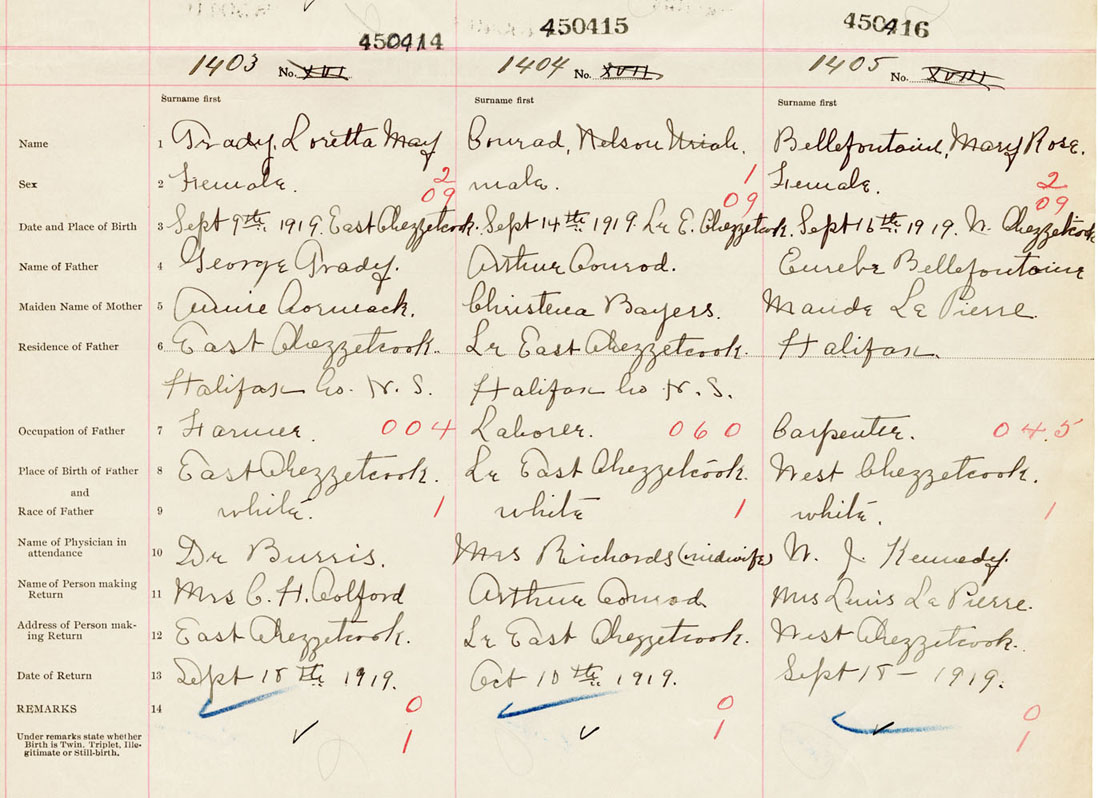 450414 450415 450416
1403 No. XVI 1404 No. XVII 1405 No. XVIII
Surname first Surname first Surname first
Name 1 Grady, Loretta May Conrad, Nelson Uriah. Bellefontaine, Mary Rose.
Sex 2 Female. 2 male. 1 Female. 2
09 09 09
Date and Place of Birth 3 Sept 9th. 1919. East Chezzetcook. Sept 14th. 1919. Lr E. Chezzetcook. Sept 16th. 1919. W. Chezzetcook
Name of Father 4 George Grady. Arthur Conrod. Eusebe Bellefontaine
Maiden Name of Mother 5 Annie Cormack. Christena Bayers. Maude La Pierre.
Residence of Father 6 East Chezzetcook. Lr East Chezzetcook. Halifax.
Halifax Co. N. S. Halifax Co N. S.
Occupation of Father 7 Farmer. 004 Laborer. 060 Carpenter. 045
Place of Birth of Father 8 East Chezzetcook. Lr East Chezzetcook. West Chezzetcook.
and
Race of Father 9 white. 1 white 1 white. 1
Name of Physician in
attendance 10 Dr Burris. Mrs Richards (midwife) W. J. Kennedy.
Name of Person making
Return 11 Mrs C. H. Colford Arthur Conrod Mrs Louis La Pierre.
Address of Person mak-
ing Return 12 East Chezzetcook. Lr East Chezzetcook. West Chezzetcook.
Date of Return 13 Sept 18th. 1919. Oct 10th. 1919. Sept 18 - 1919.
REMARKS 14 0 0 0
Under remarks state whether
Birth is Twin. Triplet, Ille-
gitimate or Still-birth. 1 1 1